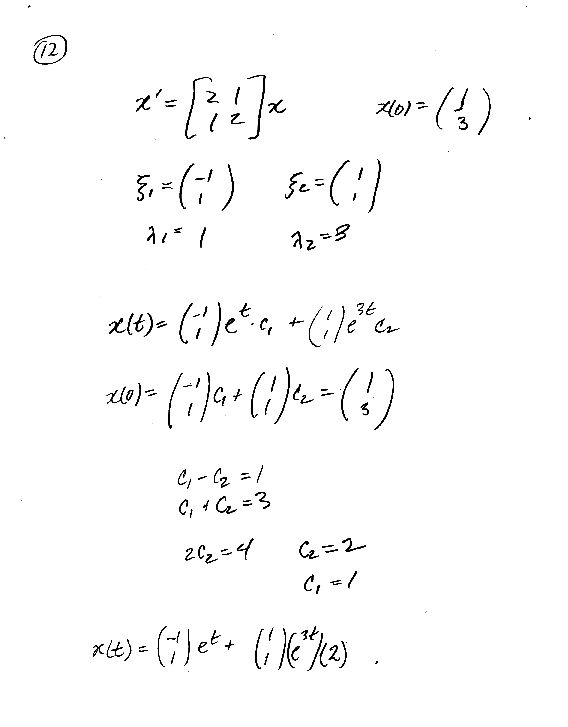 (12)
x' = [2 1; 1 2] x    x(0) = (1; 3)
ξ₁ = (-1; 1)    ξ₂ = (1; 1)
λ₁ = 1    λ₂ = 3
x(t) = (-1; 1) eᵗ · c₁ + (1; 1) e³ᵗ c₂
x(0) = (-1; 1) c₁ + (1; 1) c₂ = (1; 3)
c₁ - c₂ = 1
c₁ + c₂ = 3
2c₂ = 4    c₂ = 2
c₁ = 1
x(t) = (-1; 1) eᵗ + (1; 1)(e³ᵗ)(2).